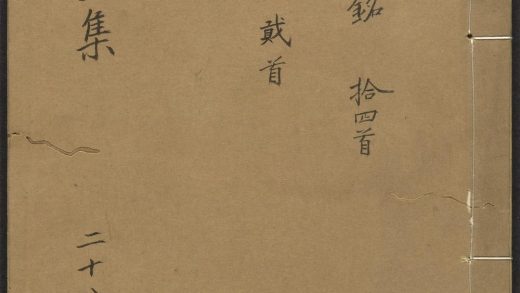 銘 拾四首
貳首
集
二十